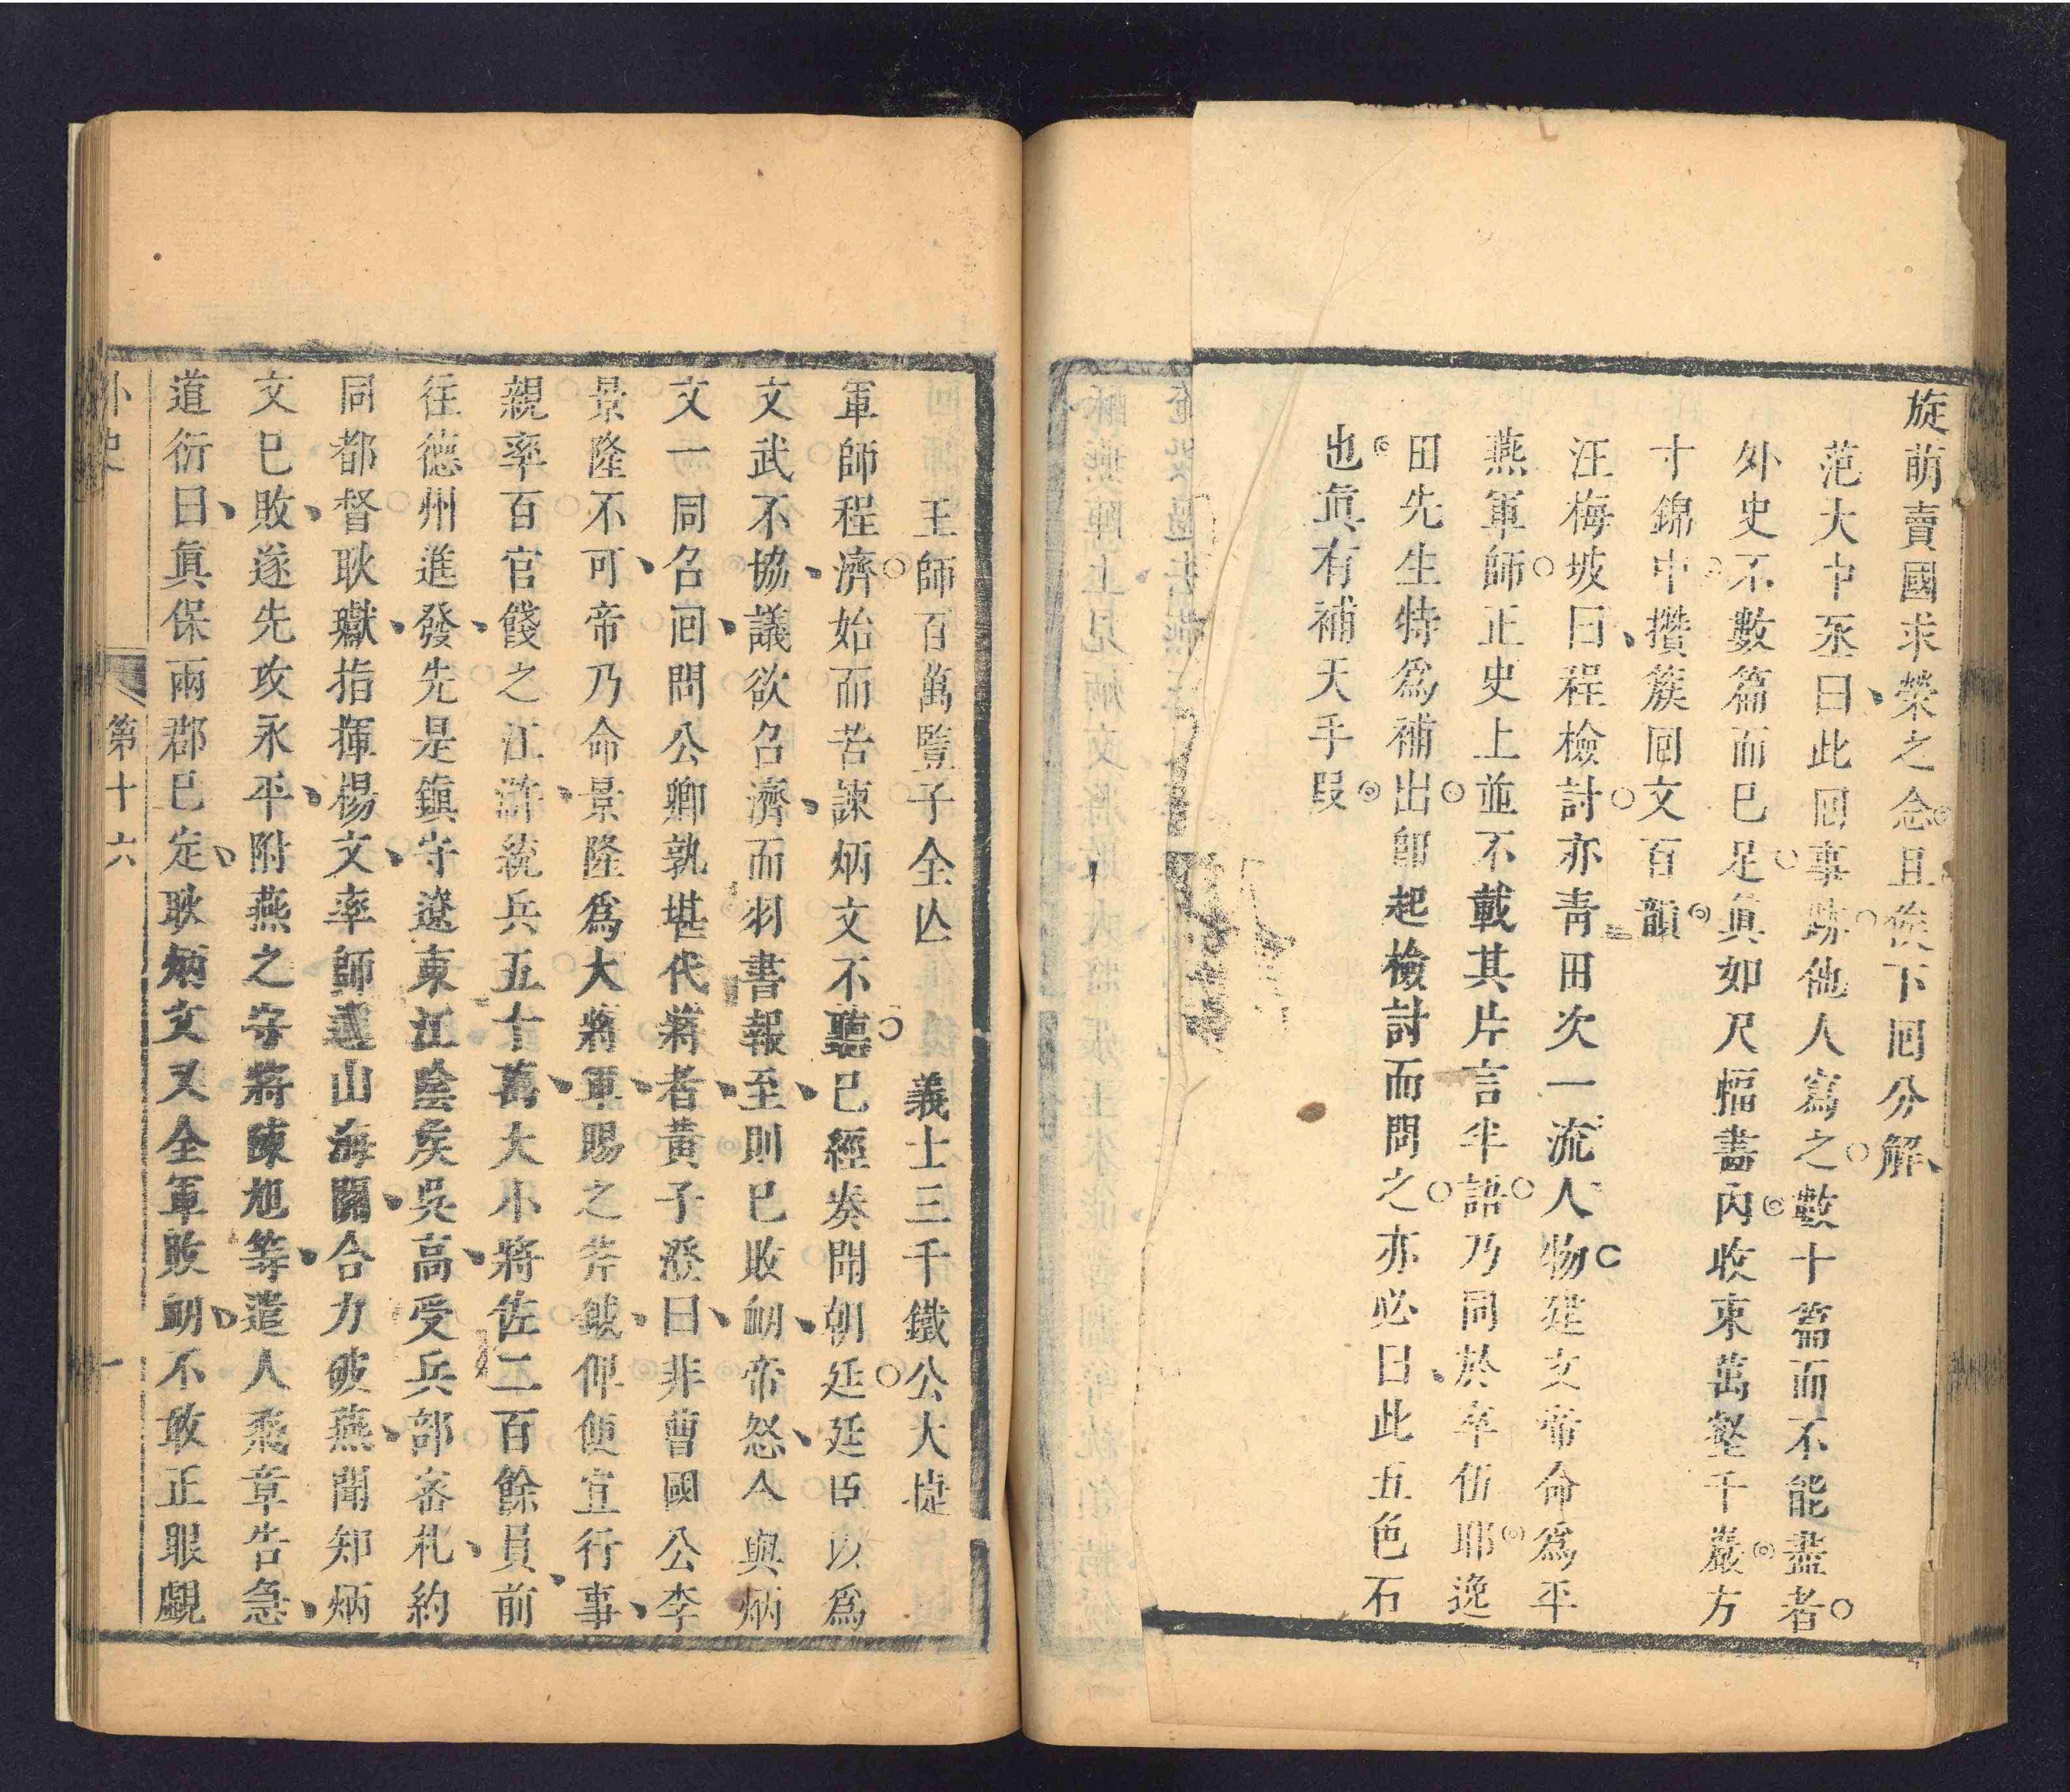 旋萌賣國求榮之念且俟下回分解
范大中丞曰此回事跡他人寫之數十篇而不能盡者
外史不數篇而已足眞如尺幅畵內收束萬壑千巖方
寸錦中攢簇回文百韻
汪梅坡曰程檢討亦青田次一流人物建文帝命爲平
燕軍師正史上並不載其片言半語乃同於卒伍耶逸
田先生特爲補出卽起檢討而問之亦必曰此五色石
也眞有補天手段
王師百萬豎子全亾　義士三千鐵公大捷
軍師程濟始而苦諫炳文不聽已經奏聞朝廷廷臣以爲
文武不協議欲召濟而羽書報至則已敗衂帝怒令與炳
文一同召回問公卿孰堪代將者黃子澄曰非曹國公李
景隆不可帝乃命景隆爲大將軍賜之斧鉞俾便宜行事
親率百官餞之江滸統兵五十萬大小將佐二百餘員前
往德州進發先是鎮守遼東江陰矦吳高受兵部密札約
同都督耿瓛指揮楊文率師越山海關合力破燕聞知炳
文已敗遂先攻永平附燕之守將陳旭等遣人飛章告急
道衍曰眞保兩郡已定耿炳文又全軍敗衂不敢正眼覷
外史
第十六
一